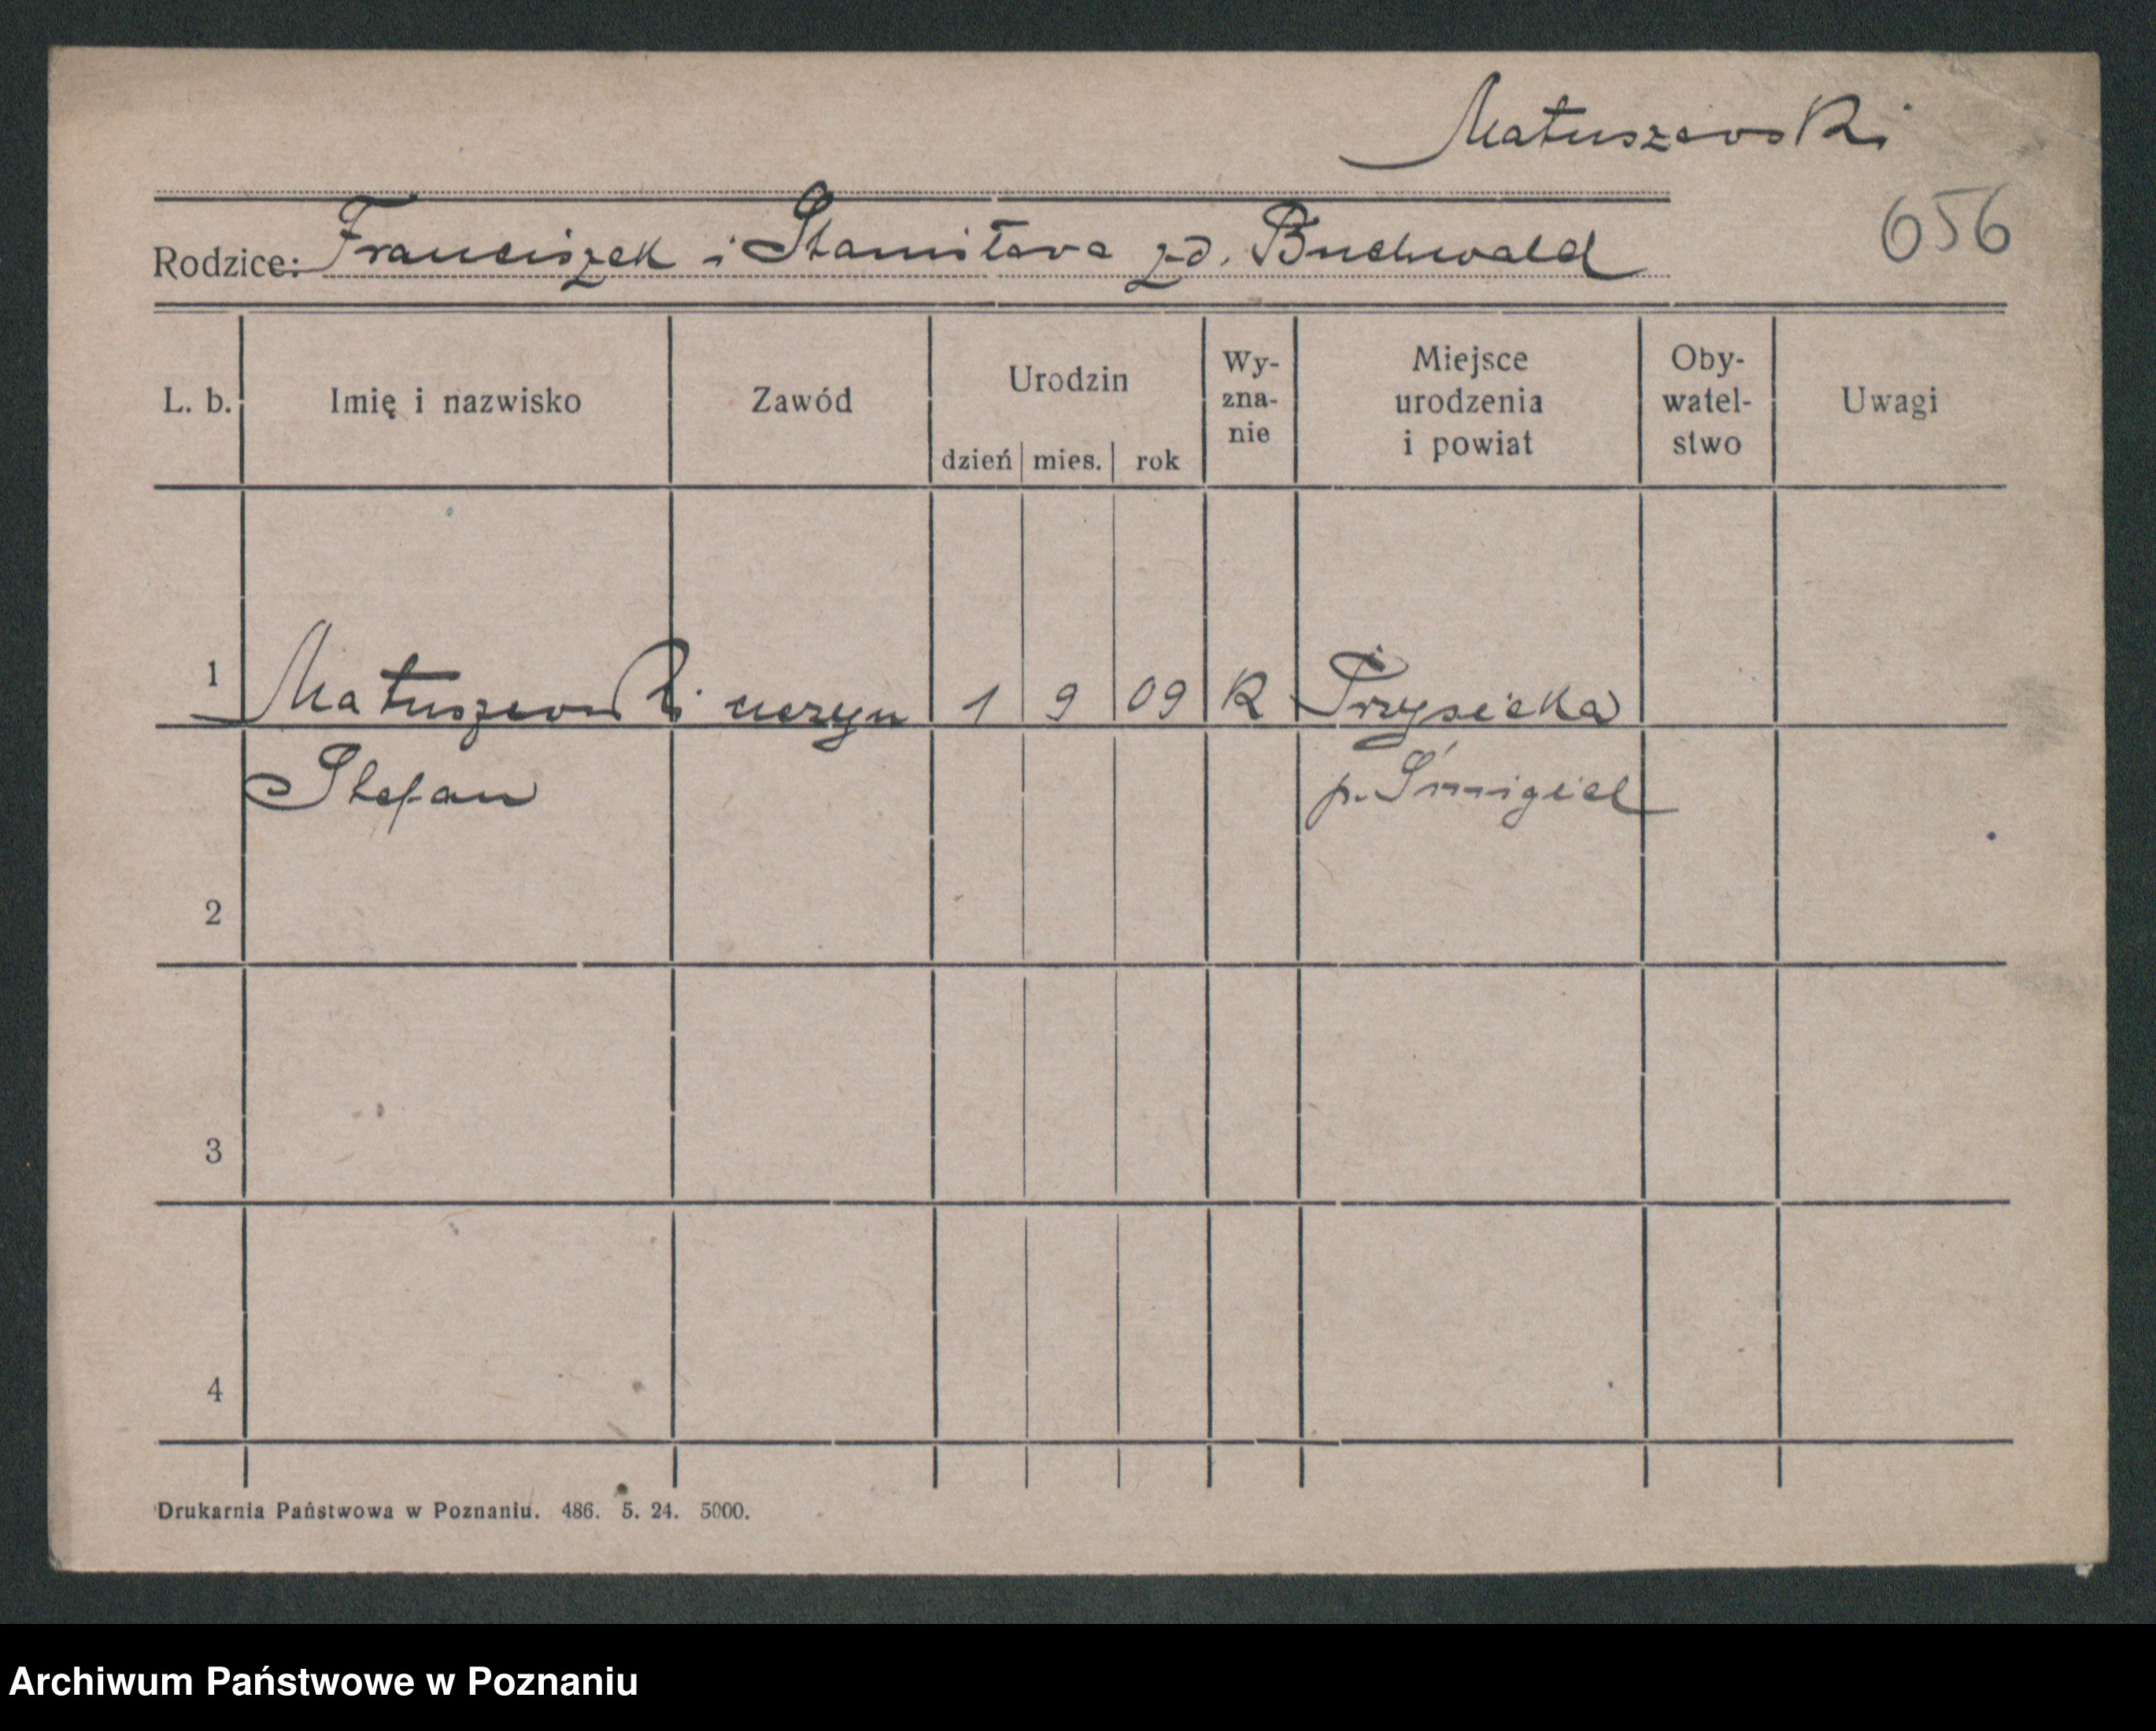 Matuszewski
656
Rodzice: Franciszek i Stanisława zd. Buchwald
L. b. Imię i nazwisko Zawód Urodzin dzień mies. rok Wy-zna-nie Miejsce urodzenia i powiat Oby-watel-stwo Uwagi
1 Matuszewski uczyń 1 9 09 R Przysieka
Stefan p. Śmigiel
2
3
4
Drukarnia Państwowa w Poznaniu. 486. 5. 24. 5000.
Archiwum Państwowe w Poznaniu